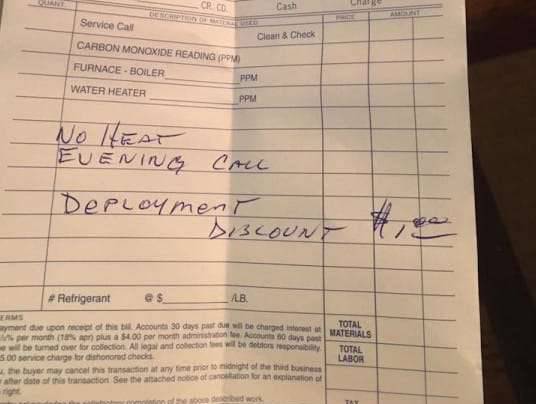 QUANT. CR. CD. Cash Charge
DESCRIPTION OF MATERIAL USED PRICE AMOUNT
Service Call Clean & Check
CARBON MONOXIDE READING (PPM)
FURNACE - BOILER PPM
WATER HEATER PPM
NO HEAT
EVENING CALL
DEPLOYMENT
DISCOUNT $1,00
# Refrigerant @ $ /LB.
ERMS
ayment due upon receipt of this bill. Accounts 30 days past due will be charged interest at
½% per month (18% apr) plus a $4.00 per month administration fee. Accounts 60 days past
e will be turned over for collection. All legal and collection fees will be debtors responsibility.
5.00 service charge for dishonored checks.
u, the buyer may cancel this transaction at any time prior to midnight of the third business
after date of this transaction. See the attached notice of cancellation for an explanation of
right.
completion of the above described work.
TOTAL
MATERIALS
TOTAL
LABOR
TAX